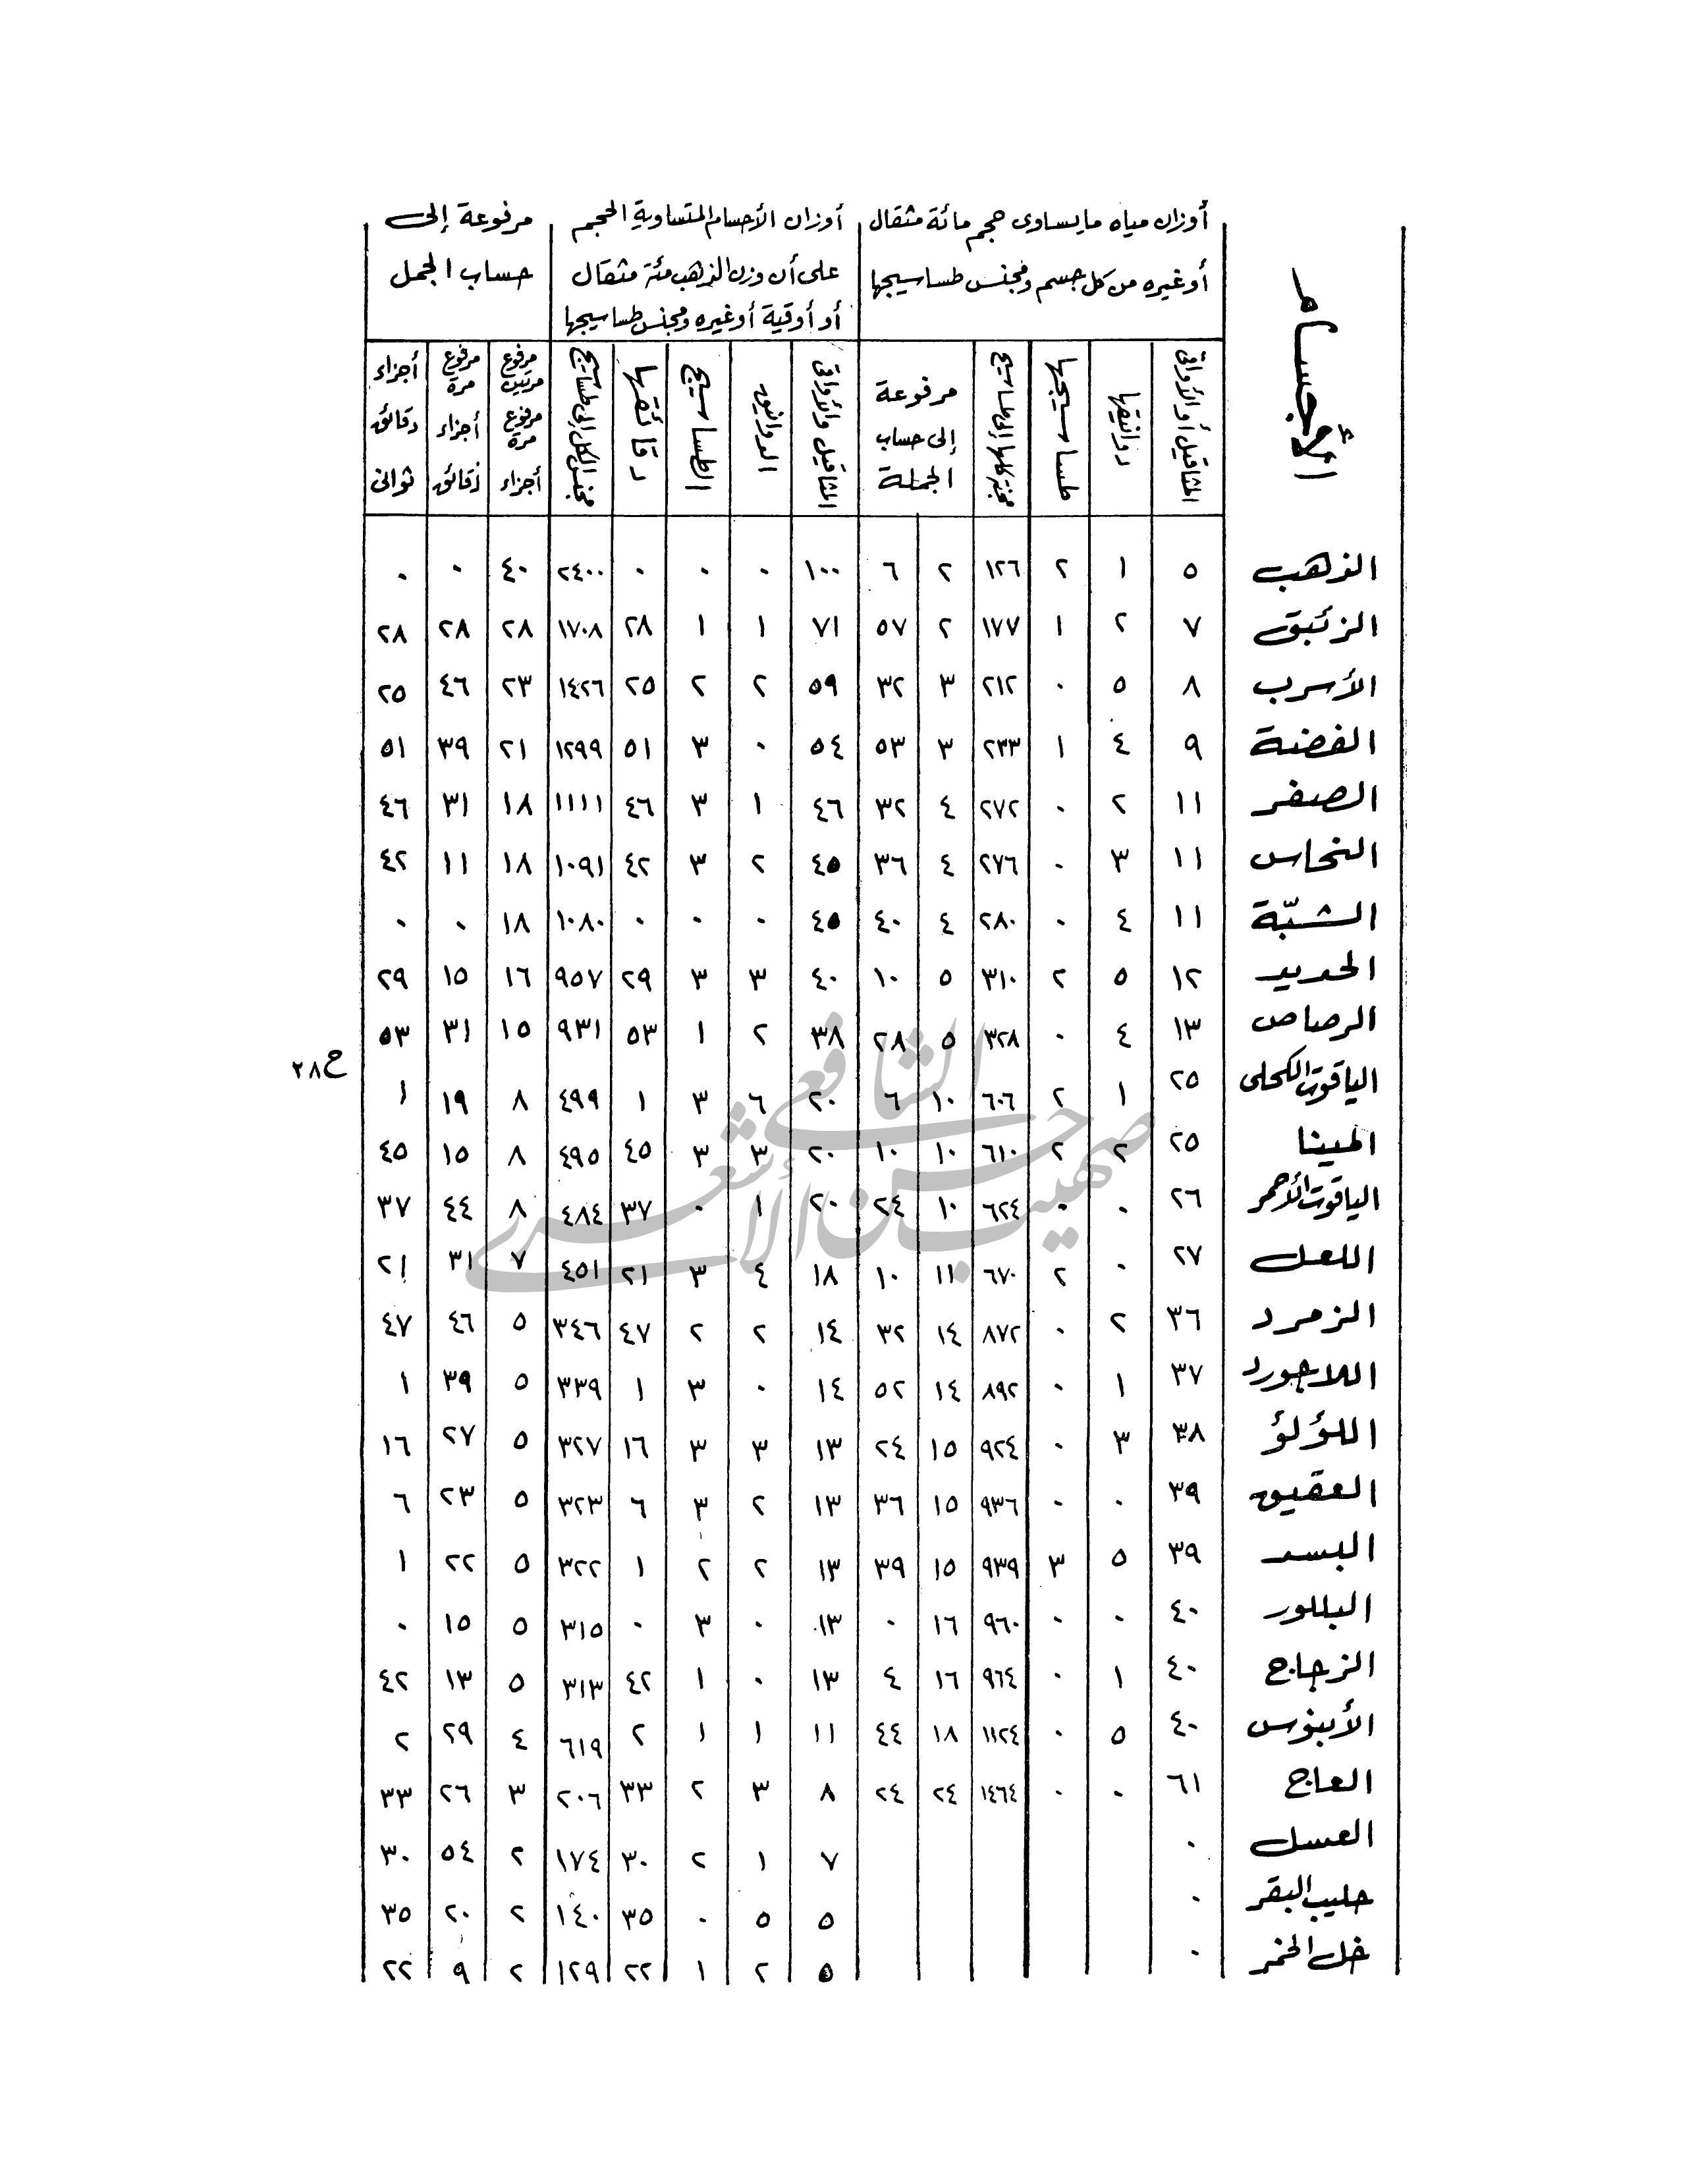 أوزان مياه ما يساوى حجم مائة مثقال أوزان الأجسام المتساوية الحجم مرفوعة إلى
أو غيره من كل جسم ومجنس طساسيجها على أن وزن الذهب مئة مثقال حساب الجمل
أو أوقية أو غيره ومجنس طساسيجها
الأجسام
المثاقيل أو الأواقى
دوانيقها
طساسيجها
مرفوعة إلى حساب الجملة
المثاقيل والأواقى
الدوانيق
الطساسيج
دقائقها
مجنس الكل إلى طساسيج
مرفوع مرتين مرفوع مرة أجزاء
مرفوع مرة أجزاء دقائق
أجزاء دقائق ثوانى
الذهب ٥ ١ ٢ ١٢٦ ٢ ٦ ١٠٠ ٠ ٠ ٠ ٢٤٠٠ ٤٠ ٠ ٠
الزئبق ٧ ٢ ١ ١٧٧ ٢ ٥٧ ٧١ ١ ١ ٢٨ ١٧٠٨ ٢٨ ٢٨ ٢٨
الأسرب ٨ ٥ ٠ ٢١٢ ٣ ٣٢ ٥٩ ٢ ٢ ٢٥ ١٤٢٦ ٢٣ ٤٦ ٢٥
الفضة ٩ ٤ ١ ٢٣٣ ٣ ٥٣ ٥٤ ٠ ٣ ٥١ ١٢٩٩ ٢١ ٣٩ ٥١
الصفر ١١ ٢ ٠ ٢٧٢ ٤ ٣٢ ٤٦ ١ ٣ ٤٦ ١١١١ ١٨ ٣١ ٤٦
النحاس ١١ ٣ ٠ ٢٧٦ ٤ ٣٦ ٤٥ ٢ ٣ ٤٢ ١٠٩١ ١٨ ١١ ٤٢
الشبّة ١١ ٤ ٠ ٢٨٠ ٤ ٤٠ ٤٥ ٠ ٠ ٠ ١٠٨٠ ١٨ ٠ ٠
الحديد ١٢ ٥ ٢ ٣١٠ ٥ ١٠ ٤٠ ٣ ٣ ٢٩ ٩٥٧ ١٦ ١٥ ٢٩
الرصاص ١٣ ٤ ٠ ٣٢٨ ٥ ٢٨ ٣٨ ٢ ١ ٥٣ ٩٣١ ١٥ ٣١ ٥٣
ح ٢٨
الياقوت الكحلى ٢٥ ١ ٢ ٦٠٦ ١٠ ٦ ٢٠ ٦ ٣ ١ ٤٩٩ ٨ ١٩ ١
المينا ٢٥ ٢ ٢ ٦١٠ ١٠ ١٠ ٢٠ ٣ ٣ ٤٥ ٤٩٥ ٨ ١٥ ٤٥
الياقوت الأحمر ٢٦ ٠ ٠ ٦٢٤ ١٠ ٢٤ ٢٠ ١ ٠ ٣٧ ٤٨٤ ٨ ٤٤ ٣٧
اللعل ٢٧ ٠ ٢ ٦٧٠ ١١ ١٠ ١٨ ٤ ٣ ٢١ ٤٥١ ٧ ٣١ ٢١
الزمرد ٣٦ ٢ ٠ ٨٧٢ ١٤ ٣٢ ١٤ ٢ ٢ ٤٧ ٣٤٦ ٥ ٤٦ ٤٧
اللاجورد ٣٧ ١ ٠ ٨٩٢ ١٤ ٥٢ ١٤ ٠ ٣ ١ ٣٣٩ ٥ ٣٩ ١
اللؤلؤ ٣٨ ٣ ٠ ٩٢٤ ١٥ ٢٤ ١٣ ٣ ٣ ١٦ ٣٢٧ ٥ ٢٧ ١٦
العقيق ٣٩ ٠ ٠ ٩٣٦ ١٥ ٣٦ ١٣ ٢ ٣ ٦ ٣٢٣ ٥ ٢٣ ٦
البسد ٣٩ ٥ ٣ ٩٣٩ ١٥ ٣٩ ١٣ ٢ ٢ ١ ٣٢٢ ٥ ٢٢ ١
البللور ٤٠ ٠ ٠ ٩٦٠ ١٦ ٠ ١٣ ٠ ٣ ٠ ٣١٥ ٥ ١٥ ٠
الزجاج ٤٠ ١ ٠ ٩٦٤ ١٦ ٤ ١٣ ٠ ١ ٤٢ ٣١٣ ٥ ١٣ ٤٢
الأبنوس ٤٠ ٥ ٠ ١١٢٤ ١٨ ٤٤ ١١ ١ ١ ٢ ٦١٩ ٤ ٢٩ ٢
العاج ٦١ ٠ ٠ ١٤٦٤ ٢٤ ٢٤ ٨ ٣ ٢ ٣٣ ٢٠٦ ٣ ٢٦ ٣٣
العسل ٠ ٧ ١ ٢ ٣٠ ١٧٤ ٢ ٥٤ ٣٠
حليب البقر ٠ ٥ ٥ ٠ ٣٥ ١٤٠ ٢ ٢٠ ٣٥
خل الخمر ٠ ٥ ٢ ١ ٢٢ ١٢٩ ٢ ٩ ٢٢
صهيب حسن الشافعي الأشعري